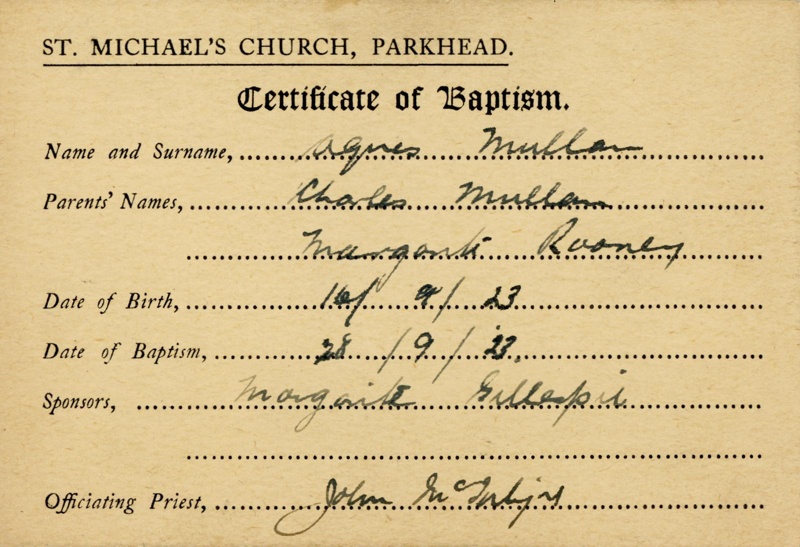 ST. MICHAEL'S CHURCH, PARKHEAD.
Certificate of Baptism.
Name and Surname, Agnes Mullan
Parents' Names, Charles Mullan
Margarite Rooney
Date of Birth, 16/ 9/ 23
Date of Baptism, 28 /9 / 23.
Sponsors, Margarite Gillespie
Officiating Priest, John